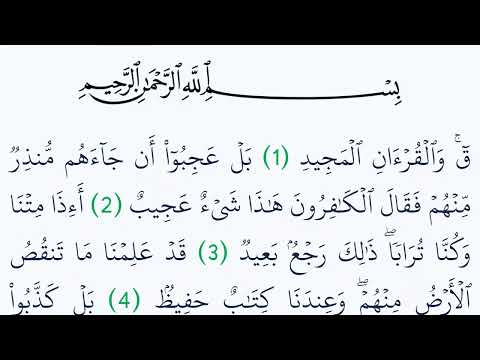 بِسْمِ ٱللَّهِ ٱلرَّحْمَٰنِ ٱلرَّحِيمِ
قٓۚ وَٱلْقُرْءَانِ ٱلْمَجِيدِ (1) بَلْ عَجِبُوٓا۟ أَن جَآءَهُم مُّنذِرٌ
مِّنْهُمْ فَقَالَ ٱلْكَٰفِرُونَ هَٰذَا شَىْءٌ عَجِيبٌ (2) أَءِذَا مِتْنَا
وَكُنَّا تُرَابًاۖ ذَٰلِكَ رَجْعٌۢ بَعِيدٌ (3) قَدْ عَلِمْنَا مَا تَنقُصُ
ٱلْأَرْضُ مِنْهُمْۖ وَعِندَنَا كِتَٰبٌ حَفِيظٌۢ (4) بَلْ كَذَّبُوا۟